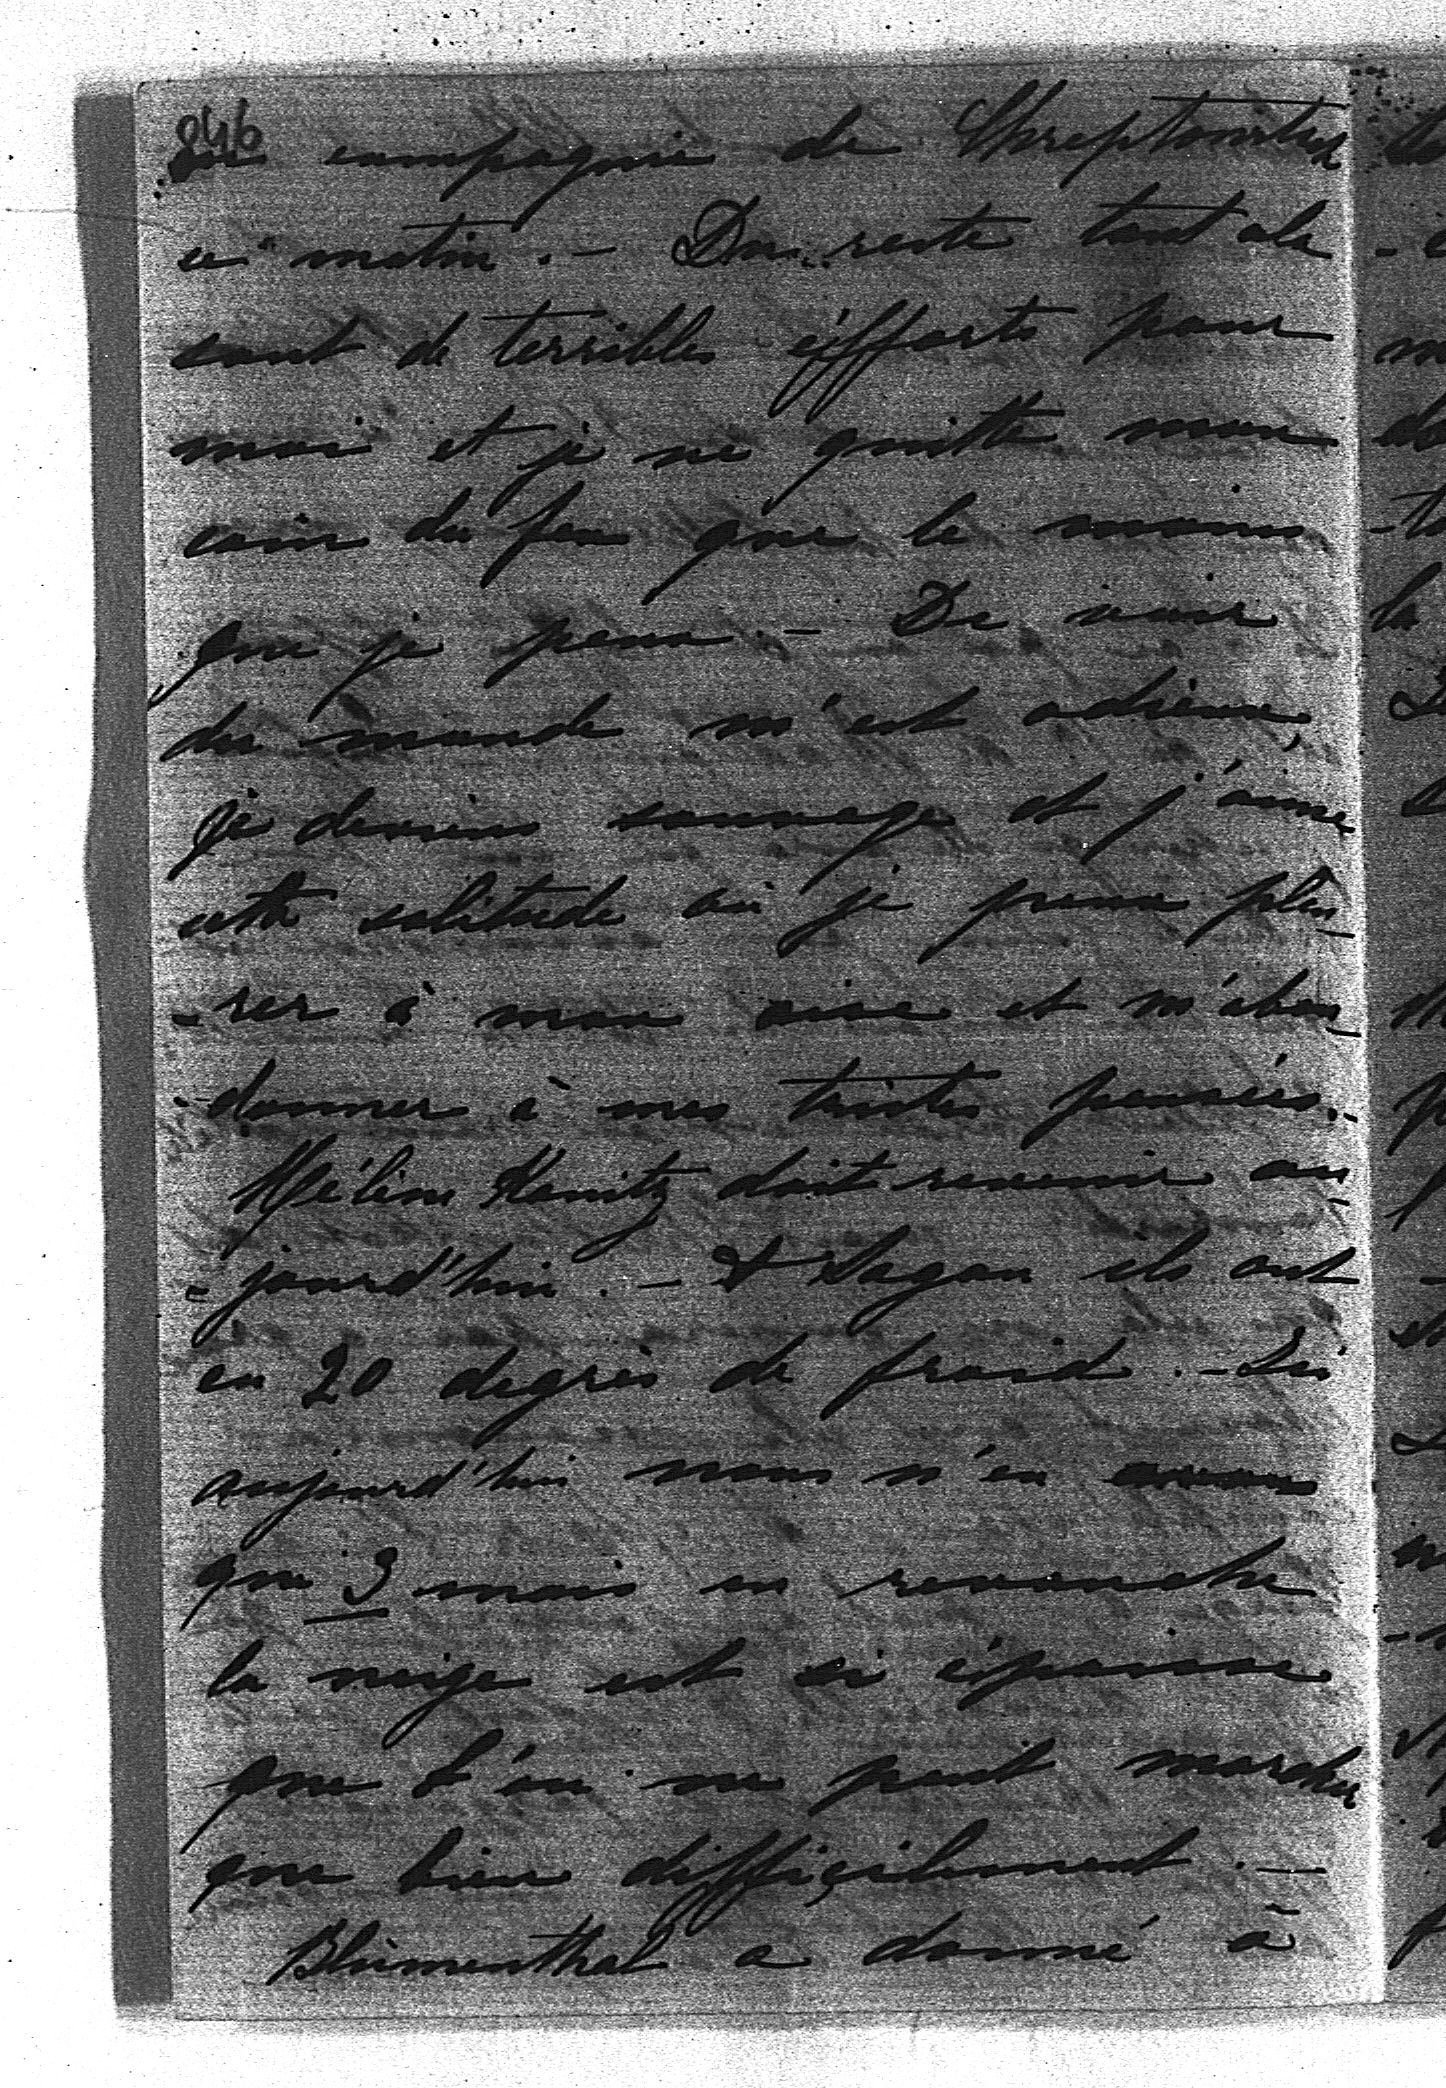 846
en compagnie de
ce matin. - Du reste tout cela
sont de terribles éfforts pour
moi et je ne quitte mon
coin du feu que le moins
que je peux. - De voir
du monde m'est odieux,
je deviens sauvage et j'aime
cette solitude où je peux pleu
-rer à mon aise et m'aban
-donner à mes tristes pensées.-
Hélène Kanitz doit revenir au
-jourd'hui. - A Sagan ils ont
eu 20 degrès de froid. - Ici
aujourd'hui nous n'en avons
que 3 mais en revanche
la neige est si épaisse
que l'on ne peut marcher
que bien difficilement. -
Blümenthal a donné à